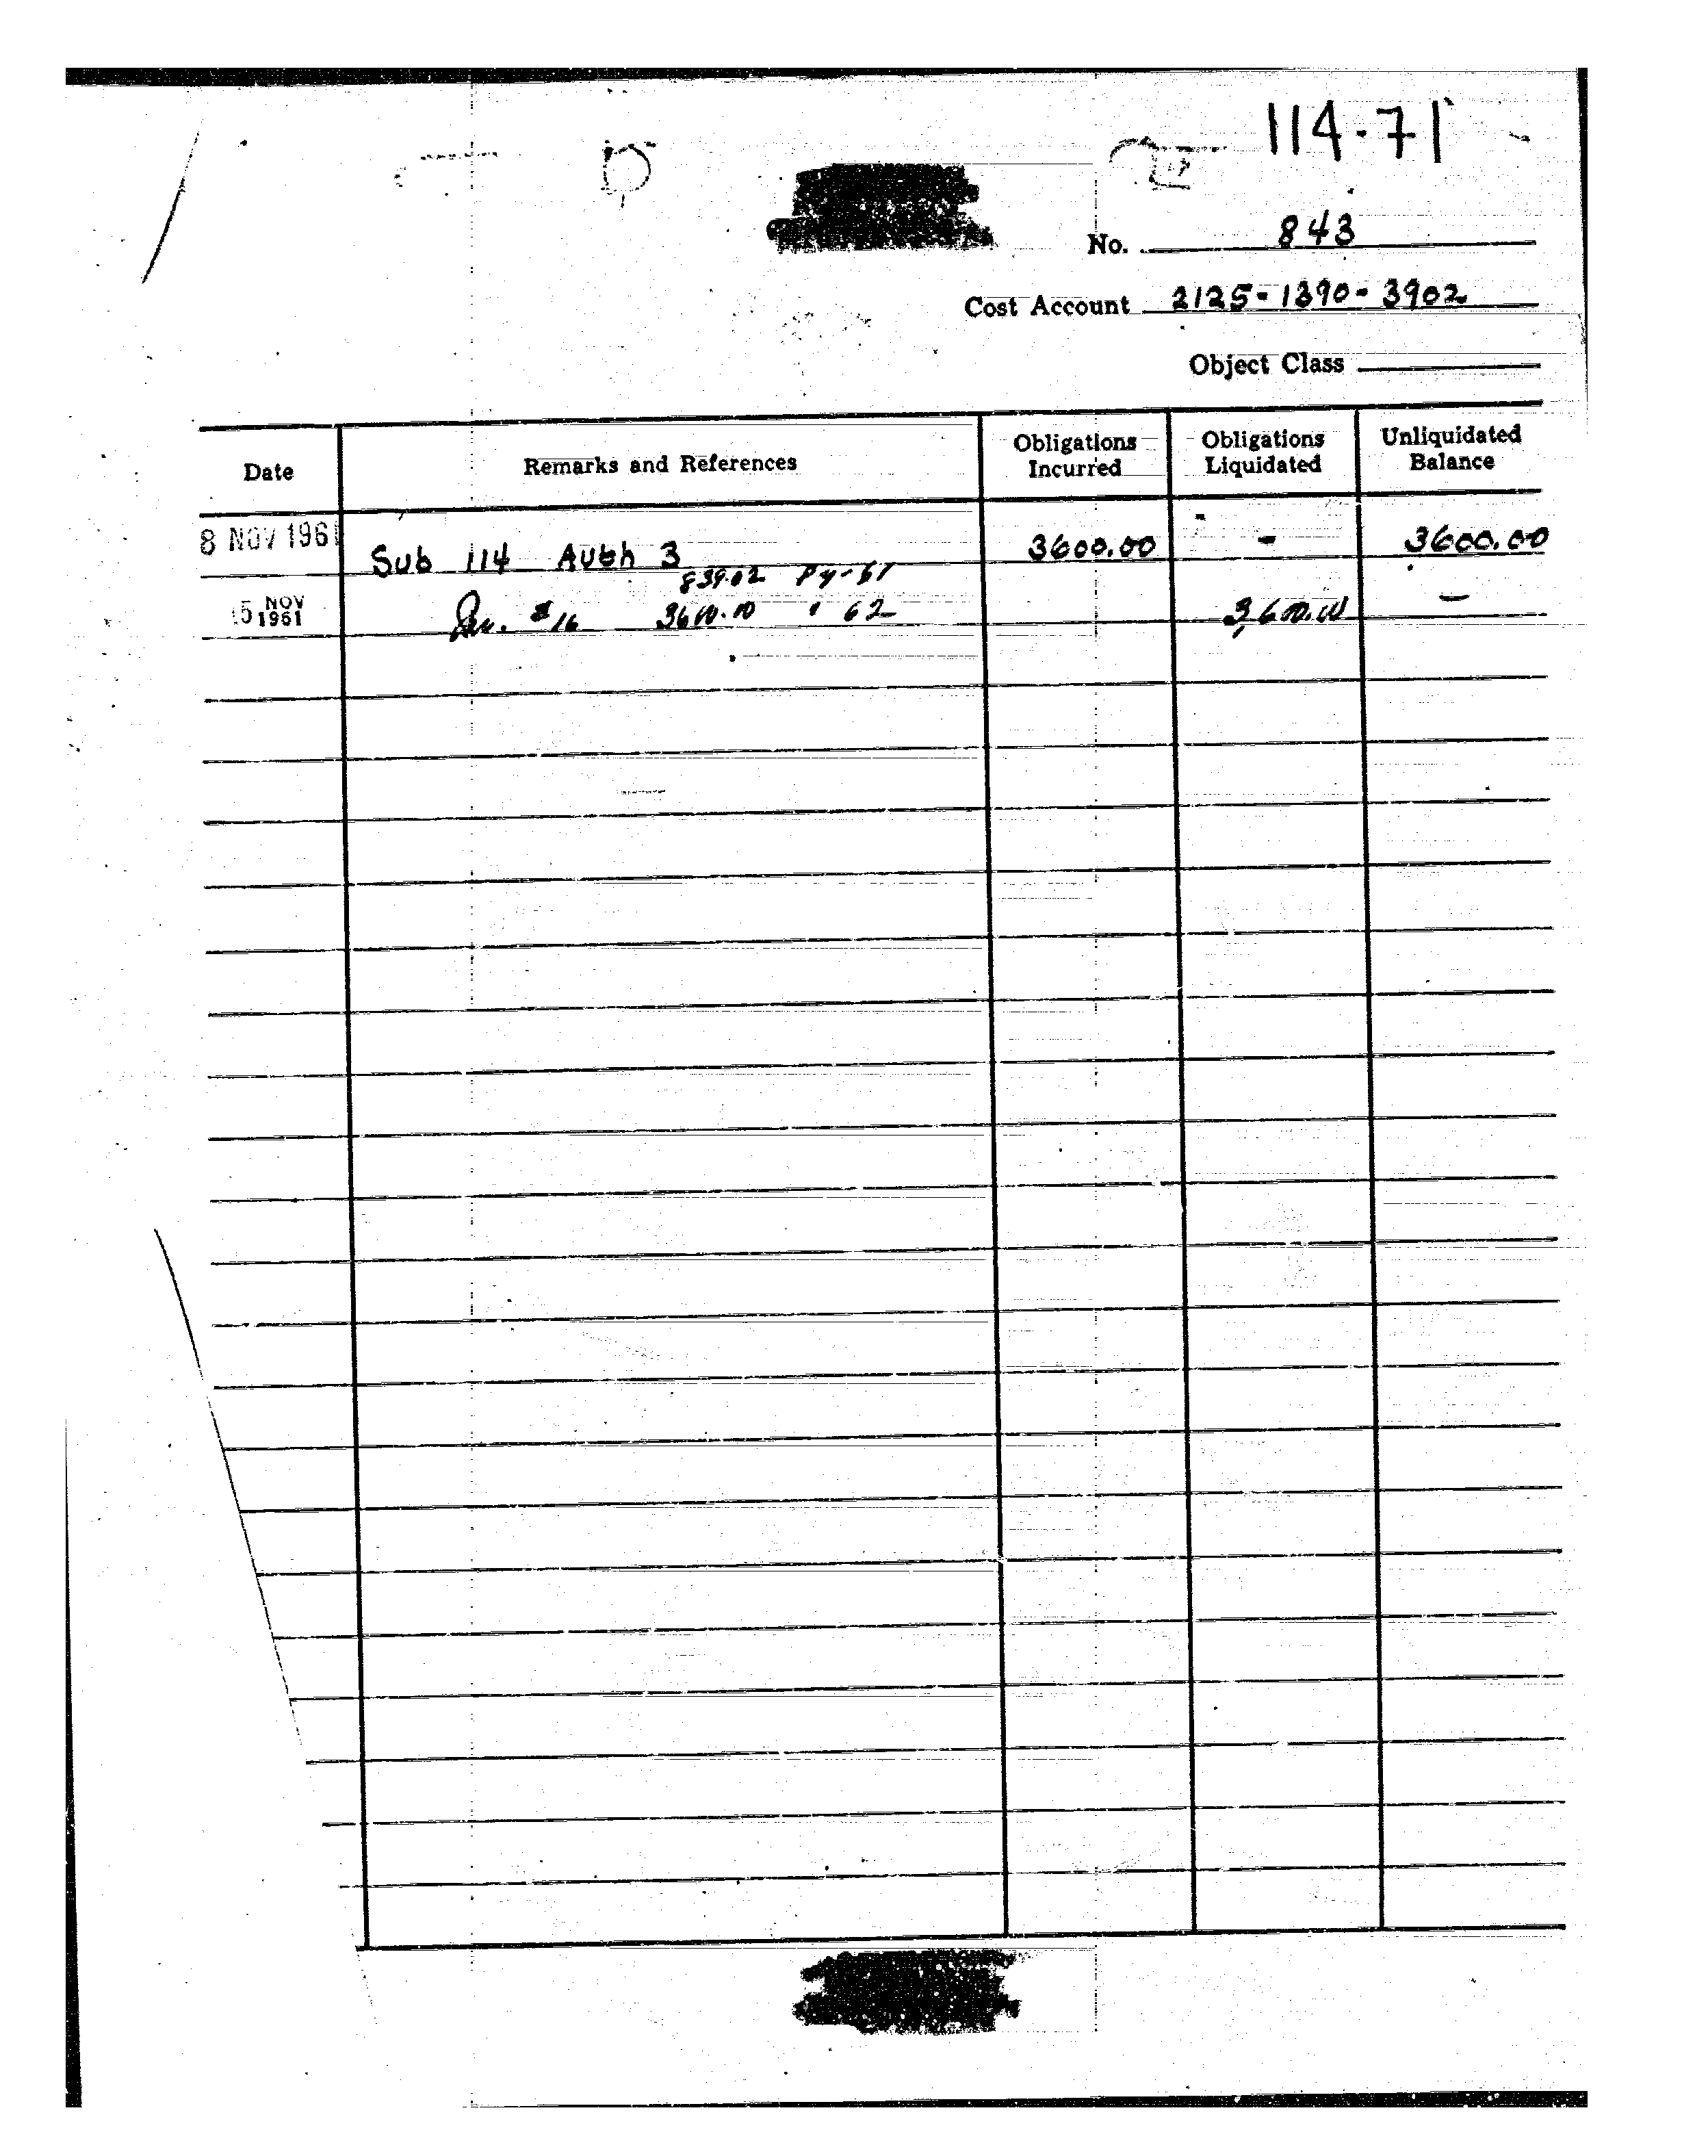 114-71
No. 843
Cost Account 2125-1390-3902
Object Class
Date Remarks and References Obligations Incurred Obligations Liquidated Unliquidated Balance
8 NOV 1961 Sub 114 Auth 3 3600.00 - 3600.00
839.02 Py-61
5 NOV 1961 Inv. #16 3600.00 " 62 3,600.00 —